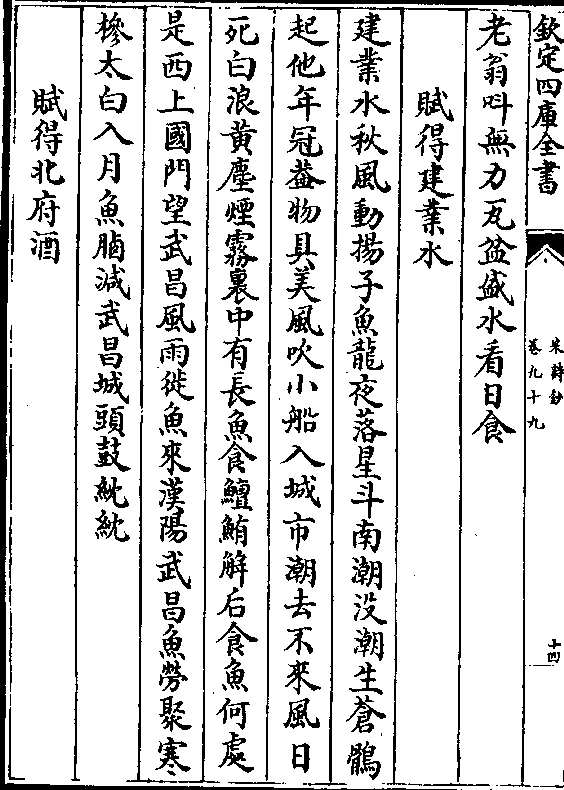 欽定四庫全書
宋詩鈔
卷九十九
十四
老翁呌無力瓦盆盛水看日食
賦得建業水
建業水秋風動揚子魚龍夜落星斗南潮没潮生蒼鶻
起他年冠蓋物具美風吹小船入城市潮去不來風日
死白浪黄塵煙霧裏中有長魚食鱣鮪解后食魚何處
是西上國門望武昌風雨徙魚來漢陽武昌魚勞聚寒
槮太白入月魚腦減武昌城頭鼓紞紞
賦得北府酒